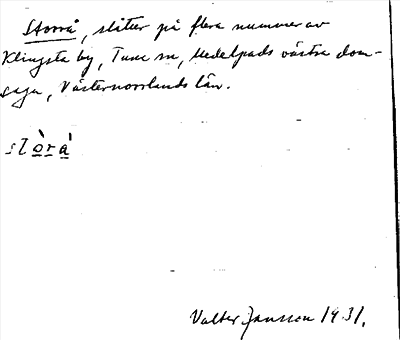 Storrå, slåtter på flera nummer av
Klingsta by, Tuna sn, Medelpads västra dom-
saga, Västernorrlands län.
Valter Jansson 1931.